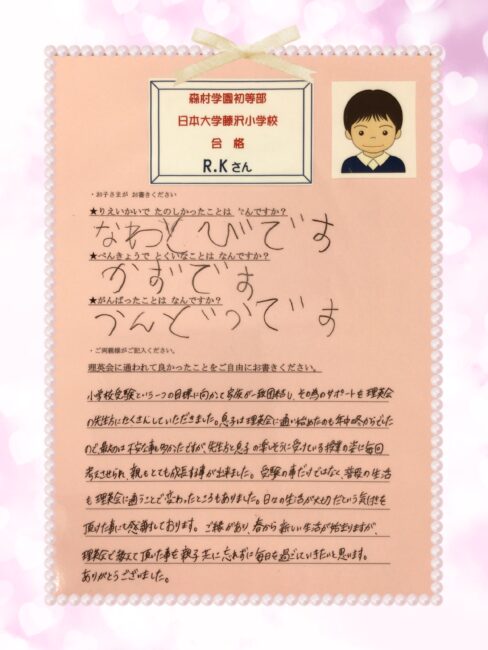 森村学園初等部
日本大学藤沢小学校
合格
R.Kさん
・お子さまが お書きください
★りえいかいで たのしかったことは なんですか?
なわとびです
★べんきょうで とくいなことは なんですか?
かずです
★がんばったことは なんですか?
うんどうです
・ご両親様がご記入ください。
理英会に通われて良かったことをご自由にお書きください。
小学校受験という一つの目標に向かって家族が一致団結し、その為のサポートを理英会
の先生方にたくさんしていただきました。息子は理英会に通い始めたのも年中の冬からでした
ので、最初は不安な事も多かったですが、先生方と息子の楽しそうに受けている授業の姿に毎回
考えさせられ、親もとても成長する事が出来ました。受験の事だけではなく、普段の生活
も理英会に通うことで変わったところもありました。日々の生活が大切だという気持を
頂けた事にも感謝しております。ご縁があり、春から新しい生活が始まりますが、
理英会で教えて頂いた事を親子共に忘れずに毎日を過ごしていきたいと思います。
ありがとうございました。